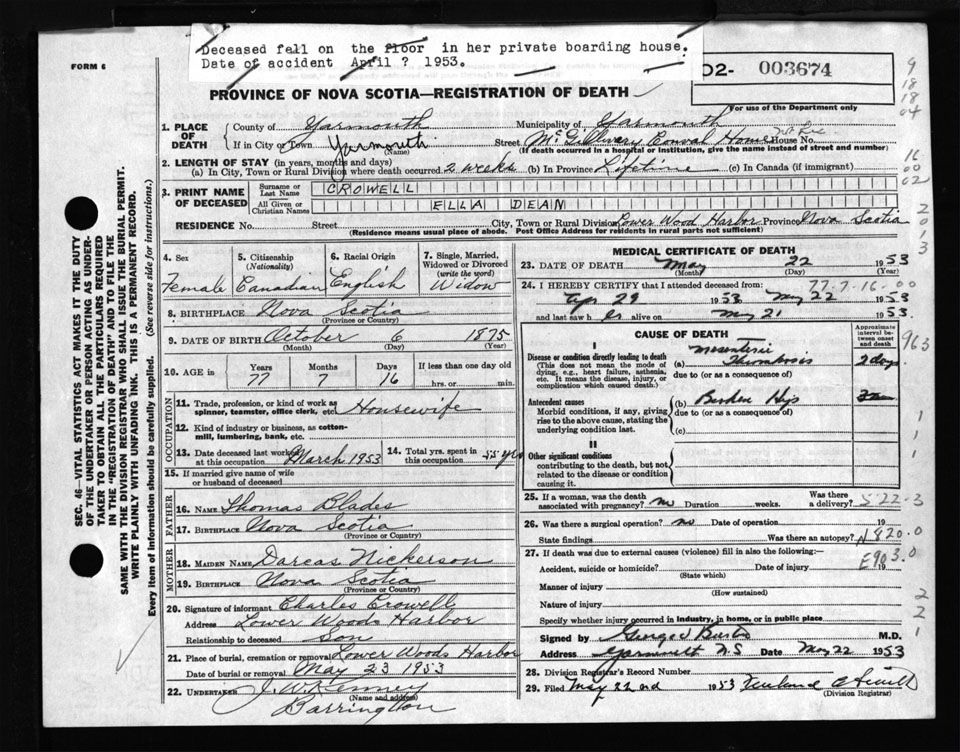 Deceased fell on the floor in her private boarding house.
Date of accident April ? 1953.
FORM 6
02- 003674
PROVINCE OF NOVA SCOTIA—REGISTRATION OF DEATH
For use of the Department only
1. PLACE OF DEATH
County of Yarmouth Municipality of Yarmouth
If in City or Town Yarmouth (Name) Street McGillvary Conval Home House No.
(If death occurred in a hospital or Institution, give the name instead of street and number)
2. LENGTH OF STAY (in years, months and days)
(a) In City, Town or Rural Division where death occurred 2 weeks (b) In Province Lifetime (c) In Canada (if immigrant)
3. PRINT NAME OF DECEASED
Surname or Last Name CROWELL
All Given or Christian Names ELLA DEAN
RESIDENCE No. Street City, Town or Rural Division Lower Wood Harbor Province Nova Scotia
(Residence means usual place of abode. Post Office Address for residents in rural parts not sufficient)
4. Sex Female
5. Citizenship (Nationality) Canadian
6. Racial Origin English
7. Single, Married, Widowed or Divorced (write the word) Widow
8. BIRTHPLACE Nova Scotia
(Province or Country)
9. DATE OF BIRTH October 6 1875
(Month) (Day) (Year)
10. AGE in Years 77 Months 7 Days 16 If less than one day old hrs. or min.
OCCUPATION
11. Trade, profession, or kind of work as spinner, teamster, office clerk, etc. Housewife
12. Kind of industry or business, as cotton-mill, lumbering, bank, etc.
13. Date deceased last worked at this occupation March 1953
14. Total yrs. spent in this occupation 55 yrs
15. If married give name of wife or husband of deceased
FATHER
16. NAME Thomas Blades
17. BIRTHPLACE Nova Scotia
(Province or Country)
MOTHER
18. MAIDEN NAME Darcas Nickerson
19. BIRTHPLACE Nova Scotia
(Province or Country)
20. Signature of informant Charles Crowell
Address Lower Woods Harbor
Relationship to deceased Son
21. Place of burial, cremation or removal Lower Woods Harbor
Date of burial or removal May 23 1953
22. UNDERTAKER J. W. Kenney
(Name and address)
Barrington
MEDICAL CERTIFICATE OF DEATH
23. DATE OF DEATH May 22 1953
(Month) (Day) (Year)
77-7-16-00
24. I HEREBY CERTIFY that I attended deceased from:
Apr 29 1953 May 22 1953
and last saw her alive on May 21 1953.
CAUSE OF DEATH
Approximate interval between onset and death
I
Disease or condition directly leading to death
(This does not mean the mode of dying, e.g., heart failure, asthenia, etc. It means the disease, injury, or complication which caused death.)
(a) Mesenteric Thrombosis 2 days
due to (or as a consequence of)
Antecedent causes
Morbid conditions, if any, giving rise to the above cause, stating the underlying condition last.
(b) Broken Hip
due to (or as a consequence of)
(c)
II
Other significant conditions
contributing to the death, but not related to the disease or condition causing it.
25. If a woman, was the death associated with pregnancy? no Duration weeks. Was there a delivery?
26. Was there a surgical operation? no Date of operation 19
State findings Was there an autopsy?
N820.0
27. If death was due to external causes (violence) fill in also the following:—
E903.0
Accident, suicide or homicide? Date of injury 19
(State which)
Manner of injury
(How sustained)
Nature of injury
Specify whether injury occurred in industry, in home, or in public place
Signed by M.D.
Address Yarmouth N.S Date May 22 1953
28. Division Registrar's Record Number
29. Filed May 22nd 1953
(Division Registrar)
SEC. 46—VITAL STATISTICS ACT MAKES IT THE DUTY
OF THE UNDERTAKER OR PERSON ACTING AS UNDER-
TAKER TO OBTAIN ALL THE PARTICULARS REQUIRED
IN THE "REGISTRATION OF DEATH" AND TO FILE THE
SAME WITH THE DIVISION REGISTRAR WHO SHALL ISSUE THE BURIAL PERMIT.
WRITE PLAINLY WITH UNFADING INK. THIS IS A PERMANENT RECORD.
Every item of information should be carefully supplied. (See reverse side for instructions.)
9
18
18
04
16
00
02
2
0
1
3
963
1
1
1
2
2
1